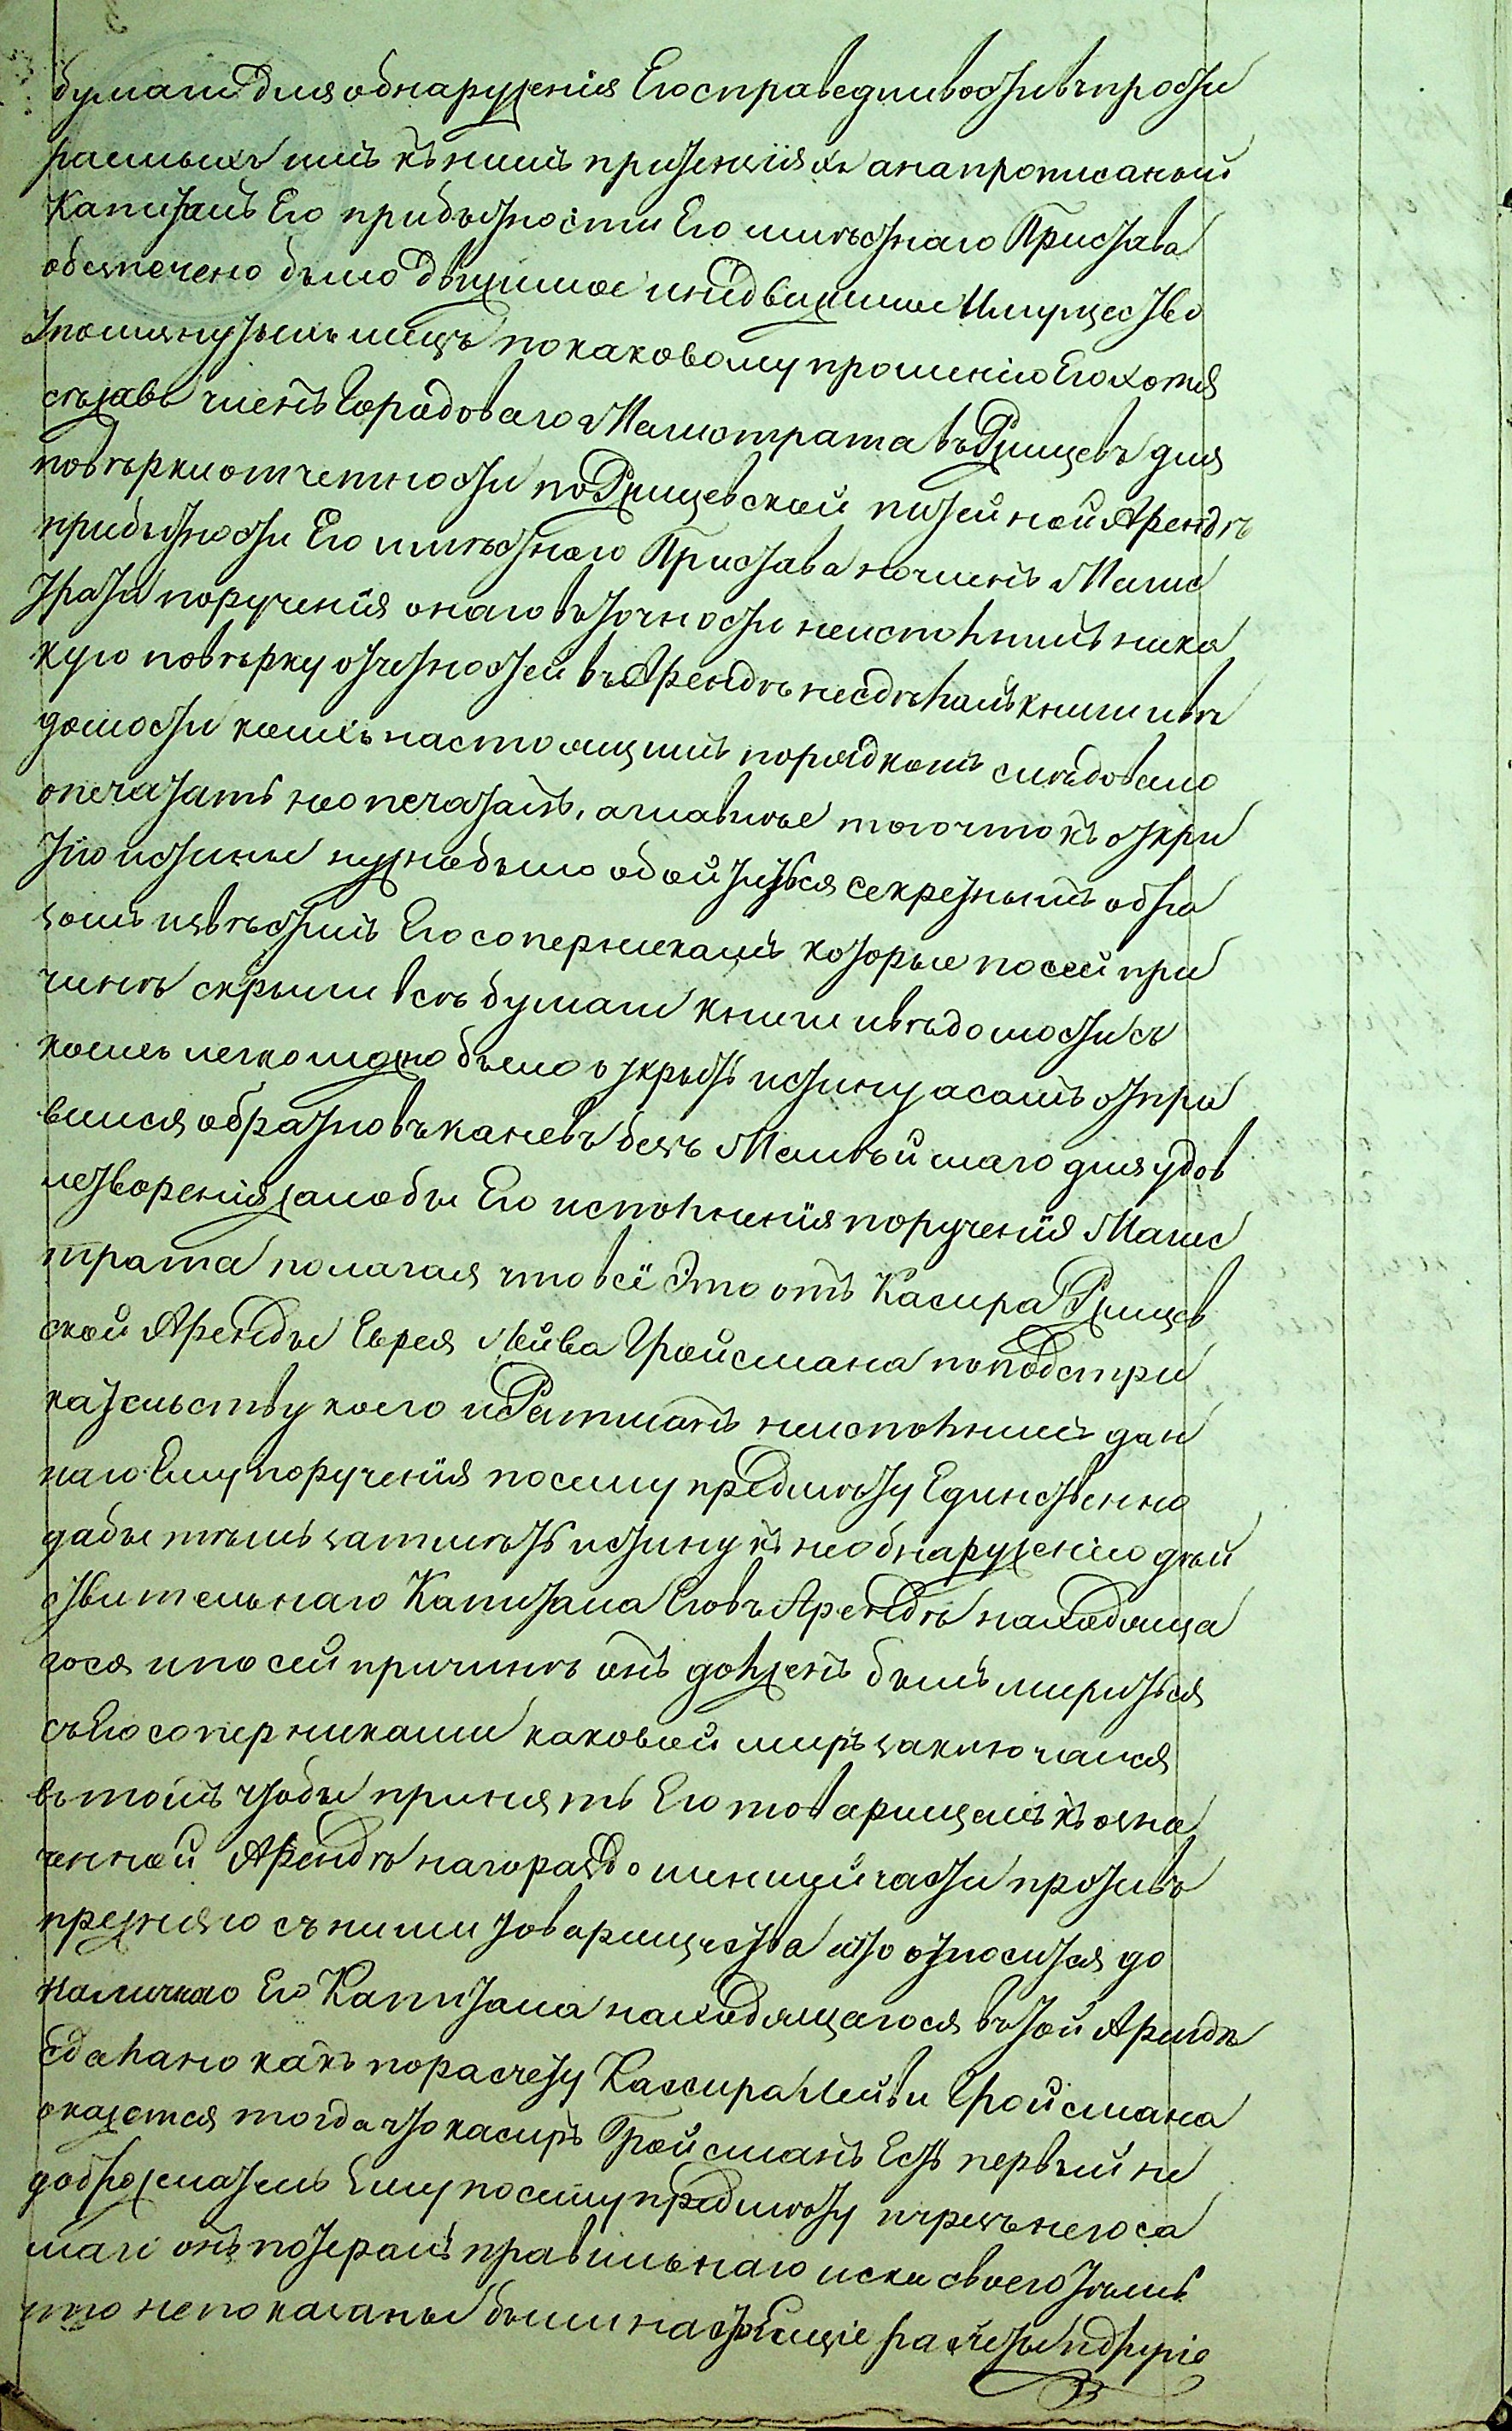 бумаги для обнаруженія Его справедливости въ прости
раемыхъ имъ къ нимъ притензіяхъ а на прописаный
Капиталъ Его прибытности Его и мѣстнаго Пристава
обезпечено было движимое и недвижимое Имущество
упомянутыхъ лицъ по каковому прошенію Его хотя
съѣзжавъ членъ Городоваго Магистрата въ Ржищевъ для
повѣрки отчетности по Ржищевской питейной Арендѣ
прибытности Его и мѣстнаго Пристава но членъ Магис
трата порученія онаго въ точности неисполнилъ ника
кую повѣрку отчетностей въ Арендѣ несдѣлалъ книги и вѣ
домости коихъ настоящимъ порядкомъ слѣдовало
опечатать неопечаталъ, а главнѣе того что къ откры
тію истины нужно было обойтиться секретнымъ обра
зомъ извѣстилъ Его соперникамъ которые по сей при
чинѣ скрыли всѣ бумаги книги и вѣдомости съ
коихъ легко можно было открыть истину а самъ отпра
вился обратно въ Каневъ безъ Малѣйшаго для удов
летворенія жалобы Его исполненія порученія Магис
трата полагая что всё Это отъ Касира Ржищев
ской Аренды Еврея Лейва Гройсмана по подстри
кательству коего и Ратманъ неисполнилъ дан
наго Ему порученія по сему предмѣту Единственно
дабы тѣмъ затмѣть истину къ необнаруженію дѣй
ствительнаго Капитала Его въ Арендѣ находяща
гося и по сей причинѣ онъ долженъ былъ мириться
съ Его соперниками каковой миръ заключался
въ томъ чтобы принять Его товарищемъ къ озна
ченной Арендѣ на гораздо меншей части противъ
прежняго съ ними товарищества а что относится до
наличнаго Его Капитала находящагося въ той Арендѣ
сдалано какъ по расчету Кассира Лейви Гройсмана
окажется тогда что касиръ Гройсманъ Есть первый не
доброжелатель Ему по сему предмѣту и чрезъ него са
маго онъ потералъ правильнаго иска своего тѣмъ
что непоказаны были настоящіе расчеты и другіе